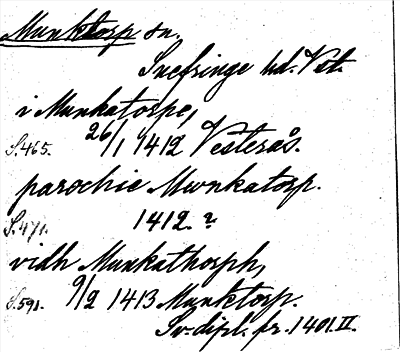 Munktorp sn.
Snefringe hd. Vstm.
i Munkatorpe,
S.465. 26/1 1412 Vesterås.
parochie Mwnkatorp.
S.471. 1412.?
vidh Munkathorph,
S.591. 9/2 1413 Munktorp.
Sv. dipl. fr. 1401.II.